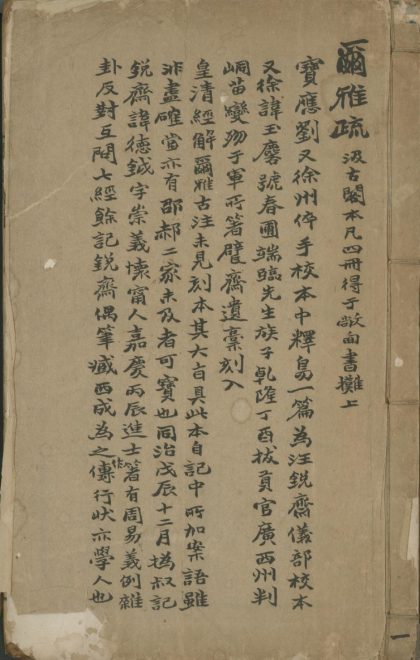 爾雅疏 汲古閣本凡四冊得于厰甸書攤上
寶應劉又徐州倅手校本中釋昜一篇為汪銳齋儀部校本
又徐諱玉麐號春圃端臨先生族子乾隆丁酉拔貢官廣西州判
峒苗變殁于軍所箸甓齋遺稾刻入
皇清經解爾雅古注未見刻本其大恉具此本自記中所加案語雖
非盡確當亦有邵郝二家未及者可寶也同治戊辰十二月撝叔記
銳齋諱德鉞字崇義懷甯人嘉慶丙辰進士箸有周易義例雜
卦反對互圖七經餘記銳齋偶筆臧西成為之作傳行狀亦學人也
一